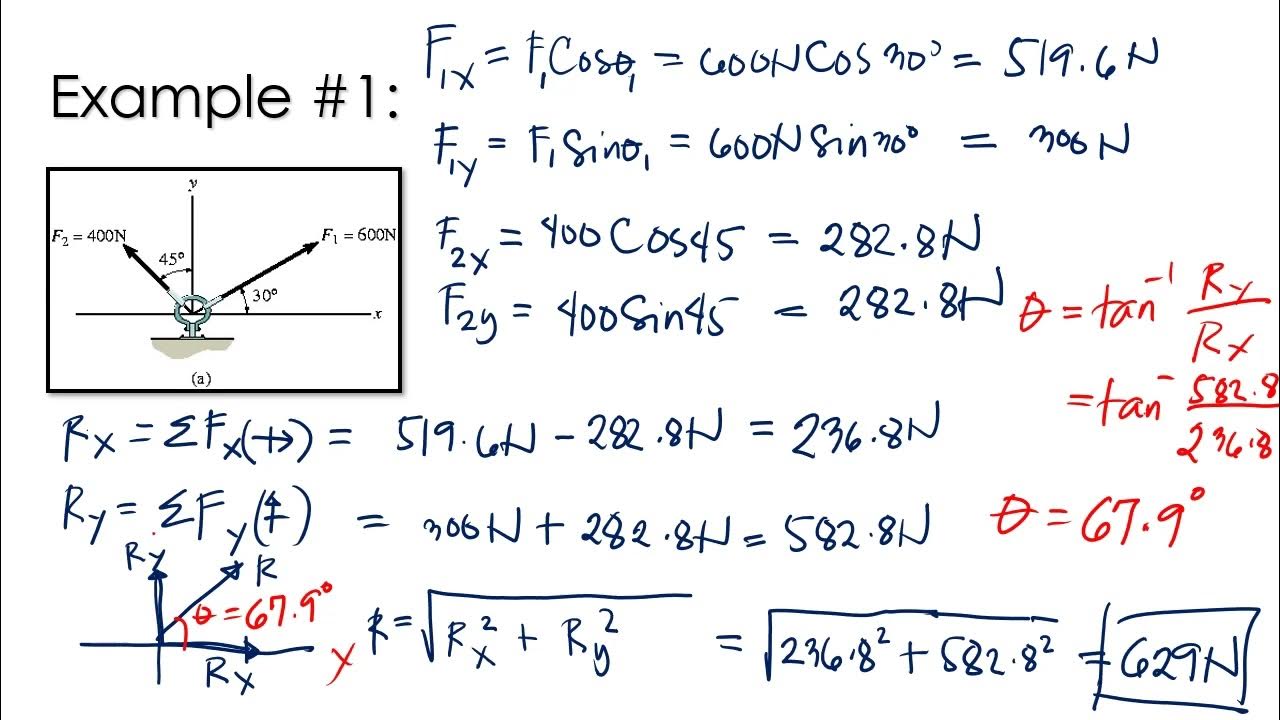 Example #1:
F₁ₓ = F₁Cosθ₁ = 600N Cos 30° = 519.6N
F₁y = F₁Sinθ₁ = 600N Sin 30° = 300N
F₂ₓ = 400 Cos45 = 282.8N
F₂y = 400 Sin45 = 282.8N
y
F₂ = 400N
F₁ = 600N
45°
30°
x
(a)
θ = tan⁻¹ Ry/Rx
= tan⁻ 582.8/236.8
θ = 67.9°
Rx = ΣFx(+→) = 519.6N - 282.8N = 236.8N
Ry = ΣFy(↑+) = 300N + 282.8N = 582.8N
Ry
R
θ = 67.9°
Rx
x
R = √(Rx² + Ry²) = √(236.8² + 582.8²) = 629N